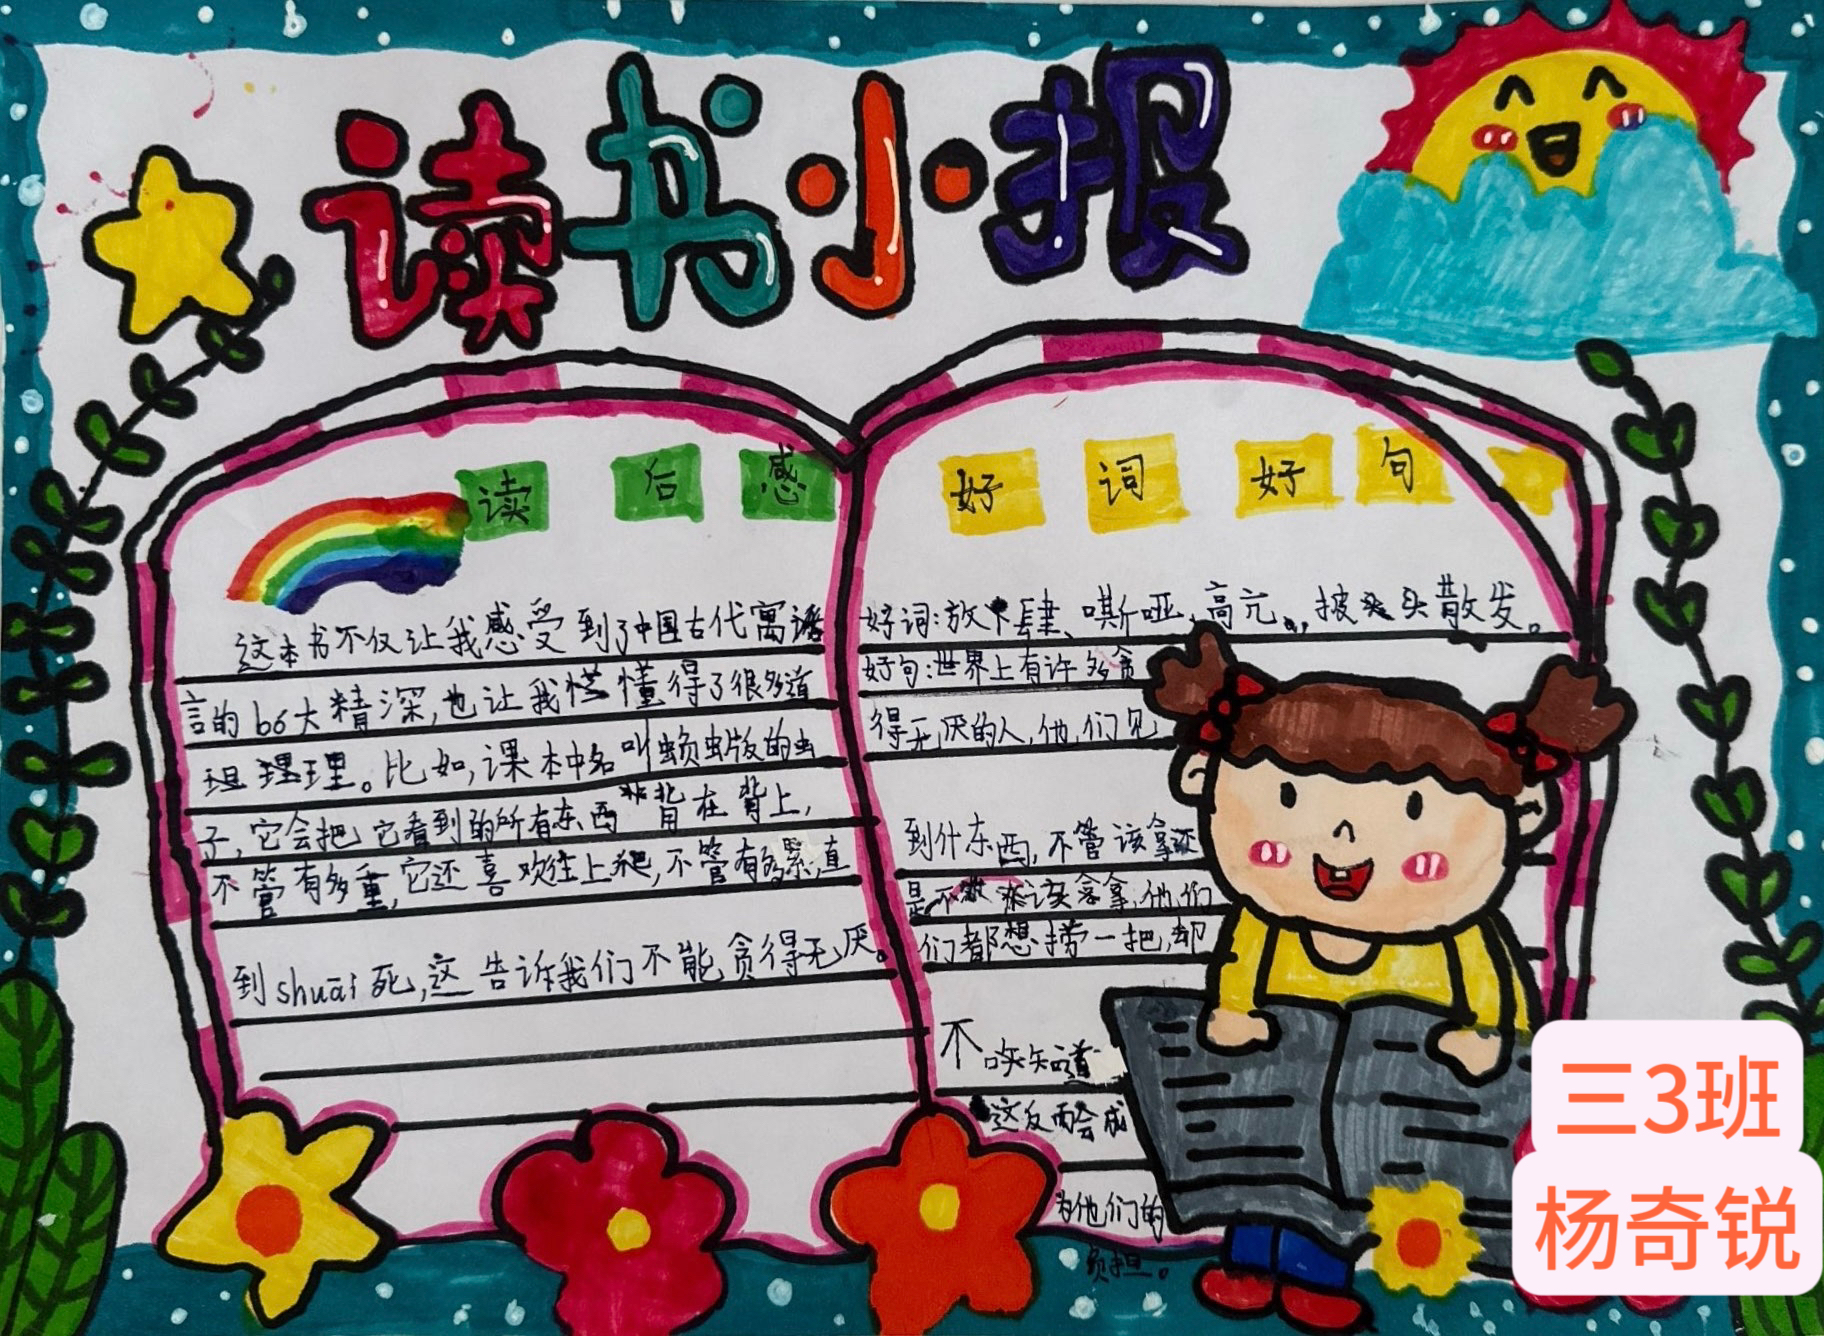 读书小报
读后感
这本书不仅让我感受到了中国古代寓
言的bó大精深,也让我懂得了很多道
理。比如,课本中名叫蝜虫版的虫
子,它会把它看到的所有东西背在背上,
不管有多重,它还喜欢往上爬,不管有多累,直
到shuāi死,这告诉我们不能贪得无厌。
好词好句
好词:放肆、嘶哑、高亢、披头散发。
好句:世界上有许多贪
得无厌的人,他们见
到什东西,不管该拿还
是不该拿,他们
们都想捞一把,却
不知道
这反而会成
为他们的
负担。
三3班
杨奇锐